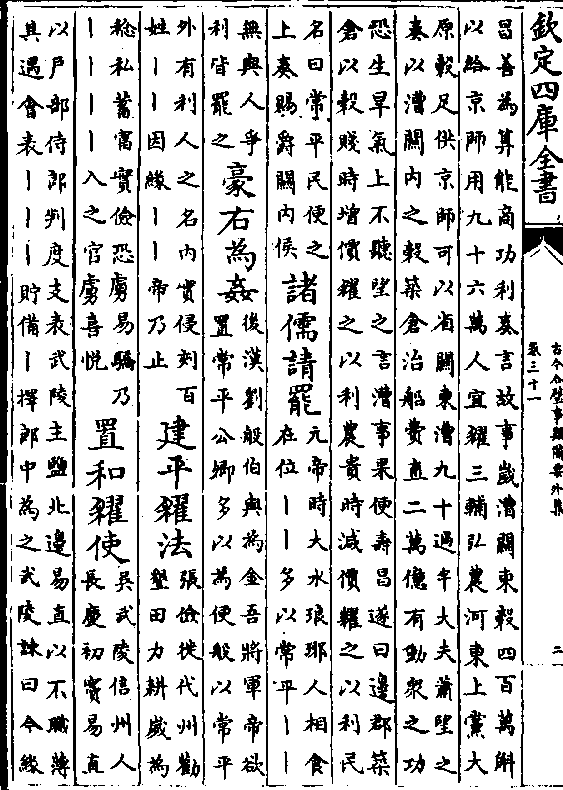 欽定四庫全書
古今合璧事類備要外集
卷三十一
二
昌善為算能商功利奏言故事歲漕關東穀四百萬斛
以給京師用九十六萬人宜糴三輔弘農河東上黨大
原穀足供京師可以省關東漕九十過半大夫蕭望之
奏以漕關內之穀築倉治船費直二萬億有動衆之功
恐生旱氣上不聽望之言漕事果便壽昌遂曰邊郡築
倉以穀賤時增價糴之以利農貴時減價糶之以利民
名曰常平民便之
上奏賜爵關內侯
諸儒請罷
元帝時大水琅琊人相食
在位丨丨多以常平丨丨
無與人爭
利皆罷之
豪右為姦
後漢劉般伯輿為金吾將軍帝欲
置常平公卿多以為便般以常平
外有利人之名內實侵刻百
姓丨丨因緣丨丨帝乃止
建平糴法
張儉徙代州勸
墾田力耕歲為
稔私蓄富實儉恐虜易驕乃
丨丨丨丨入之官虜喜悅
置和糴使
吳武陵信州人
長慶初竇易直
以戶部侍郎判度支表武陵主鹽北邊易直以不職薄
其遇會表丨丨丨貯備丨擇郎中為之武陵諫曰今緣